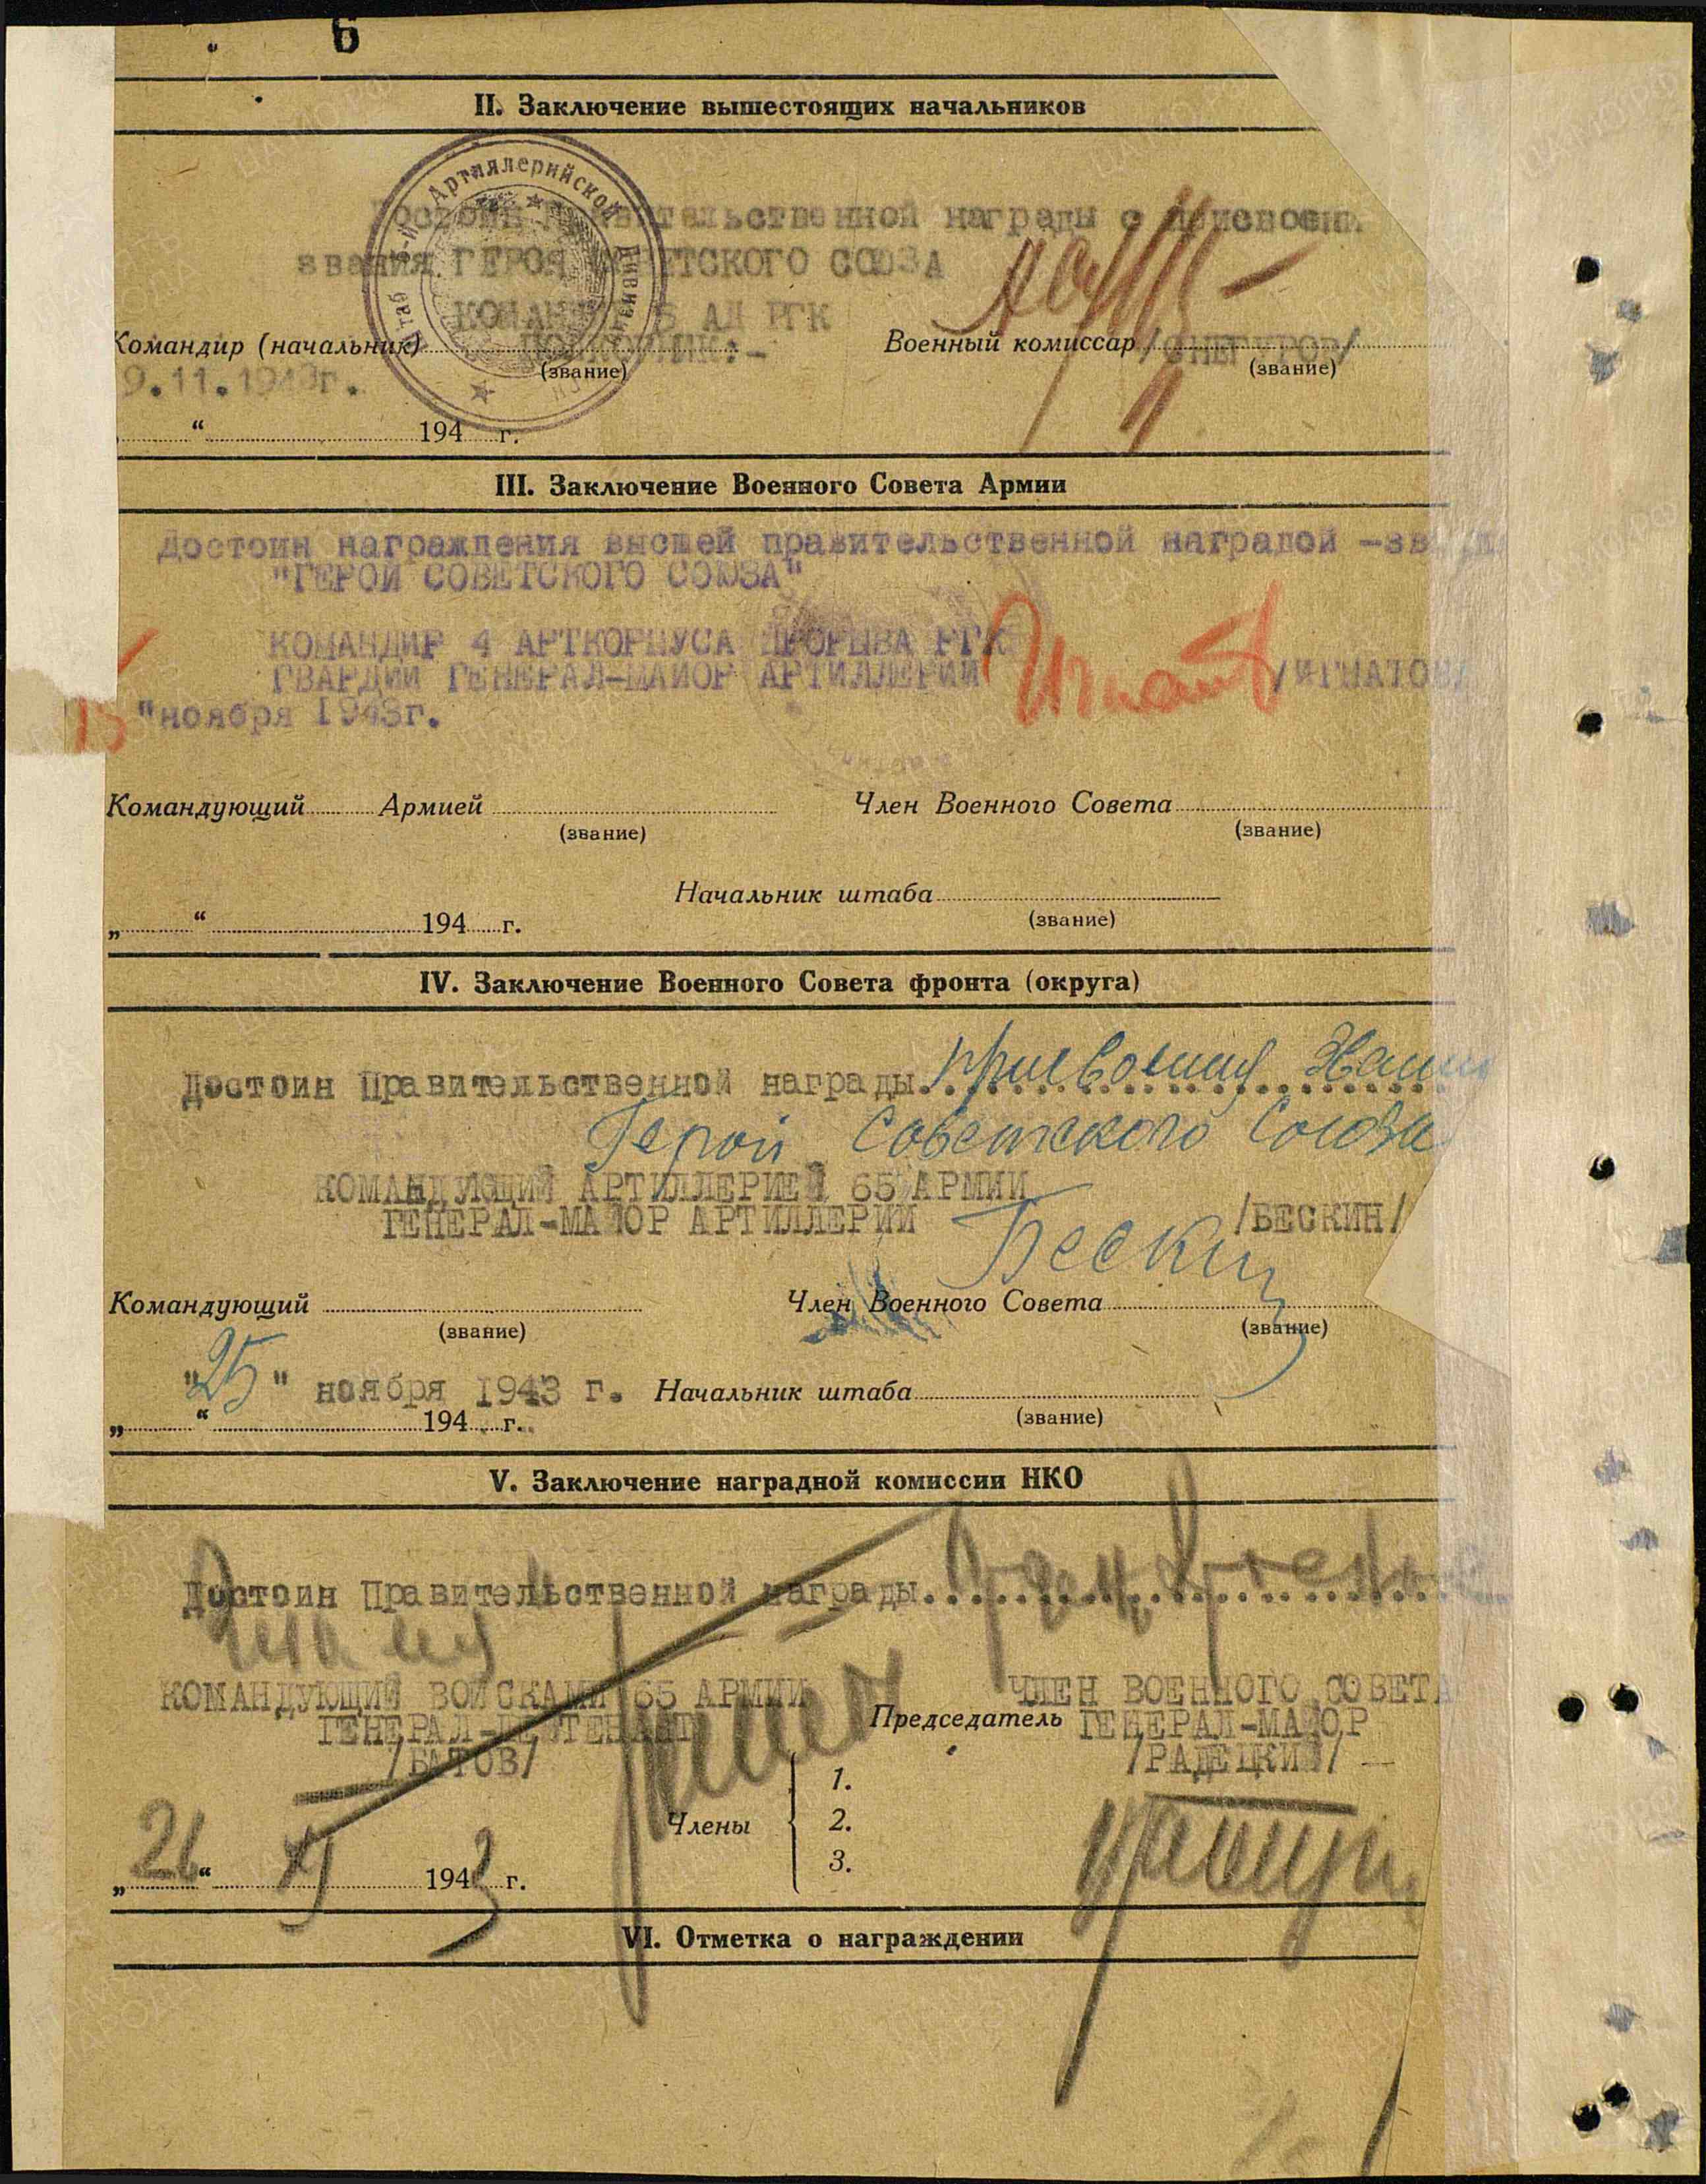 6
II. Заключение вышестоящих начальников
Штаб 5-й Артиллерийской Дивизии
Достоин Правительственной награды с присвоени
звания ГЕРОЯ СОВЕТСКОГО СОЮЗА
КОМАНДИР 5 АД РГК
Командир (начальник) ПОЛКОВНИК:- Военный комиссар /СНЕГУРОВ/
(звание) (звание)
9.11.1943г.
“ 194 г.
III. Заключение Военного Совета Армии
Достоин награждения высшей правительственной наградой -зв
"ГЕРОЙ СОВЕТСКОГО СОЮЗА"
КОМАНДИР 4 АРТКОРПУСА ПРОРЫВА РГК
ГВАРДИИ ГЕНЕРАЛ-МАЙОР АРТИЛЛЕРИИ Игнатов /ИГНАТОВ/
15 "ноября 1943г.
Командующий Армией Член Военного Совета
(звание) (звание)
Начальник штаба
„ “ 194 г. (звание)
IV. Заключение Военного Совета фронта (округа)
Достоин Правительственной награды присвоения
Герой Советского Союза
КОМАНДУЮЩИЙ АРТИЛЛЕРИЕЙ 65 АРМИИ
ГЕНЕРАЛ-МАЙОР АРТИЛЛЕРИИ Бескин /БЕСКИН/
Командующий Член Военного Совета
(звание) (звание)
"25" ноября 1943 г. Начальник штаба
„ “ 194 г. (звание)
V. Заключение наградной комиссии НКО
Достоин Правительственной награды
КОМАНДУЮЩИЙ ВОЙСКАМИ 65 АРМИИ ЧЛЕН ВОЕННОГО СОВЕТА
ГЕНЕРАЛ-ЛЕЙТЕНАНТ Председатель ГЕНЕРАЛ-МАЙОР
/БАТОВ/ /РАДЕЦКИЙ/
Члены
1.
2.
3.
„26“ XI 1943 г.
VI. Отметка о награждении